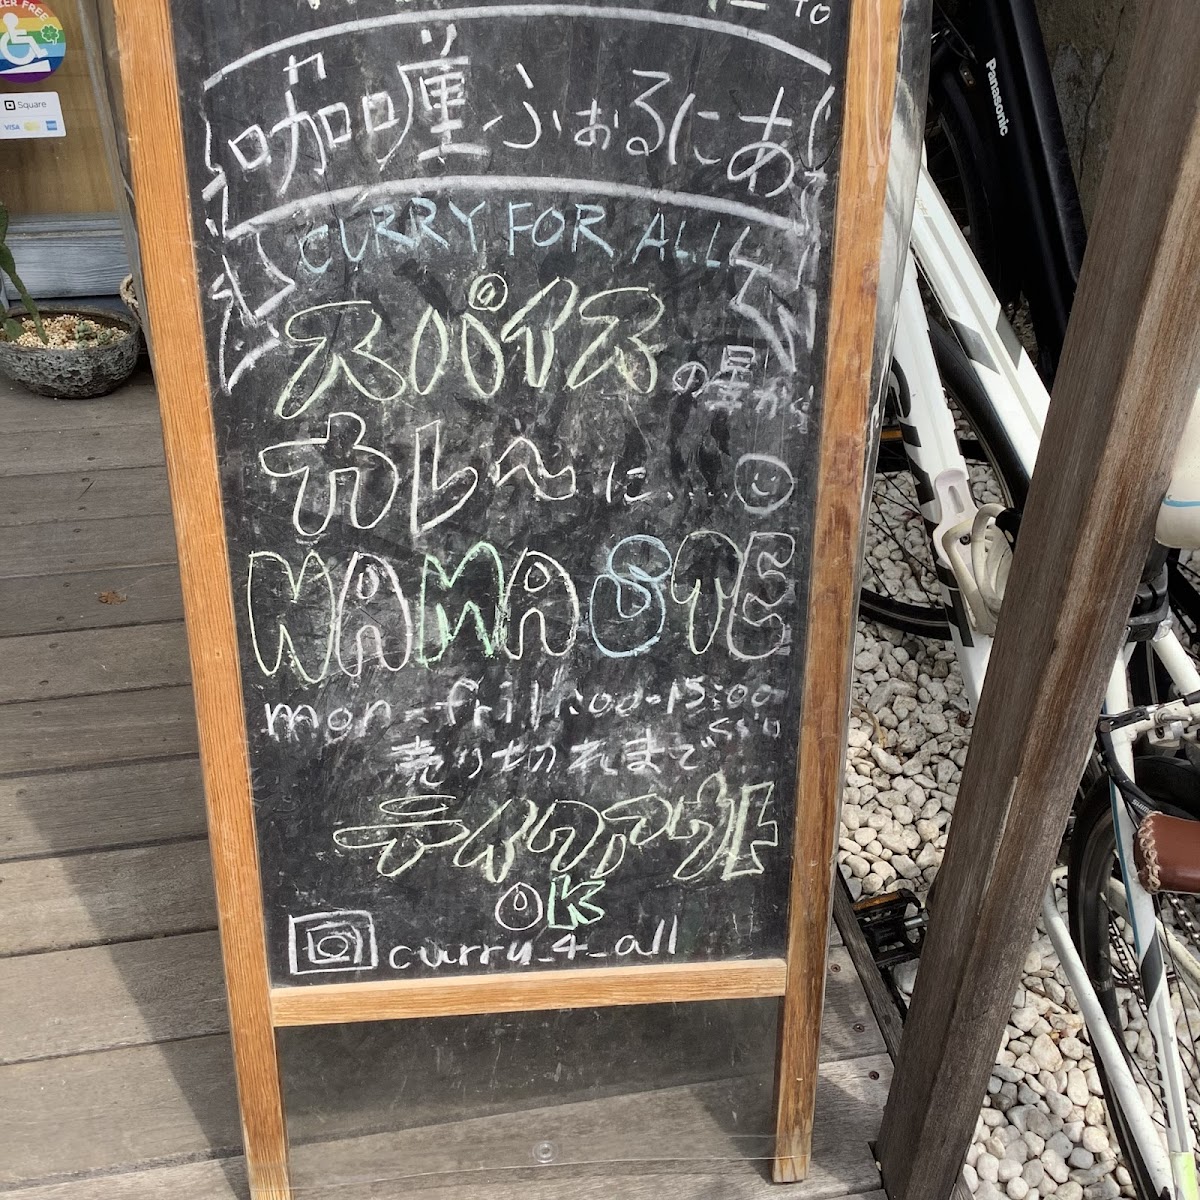 TO
咖喱ふぉるにあ
CURRY FOR ALL
スパイス
の星から
カレー に....
NAMASTE
mon-fri 11:00-15:00
くらい
売り切れまで
テイクアウト
OK
curry_4_all
Panasonic
Square
VISA